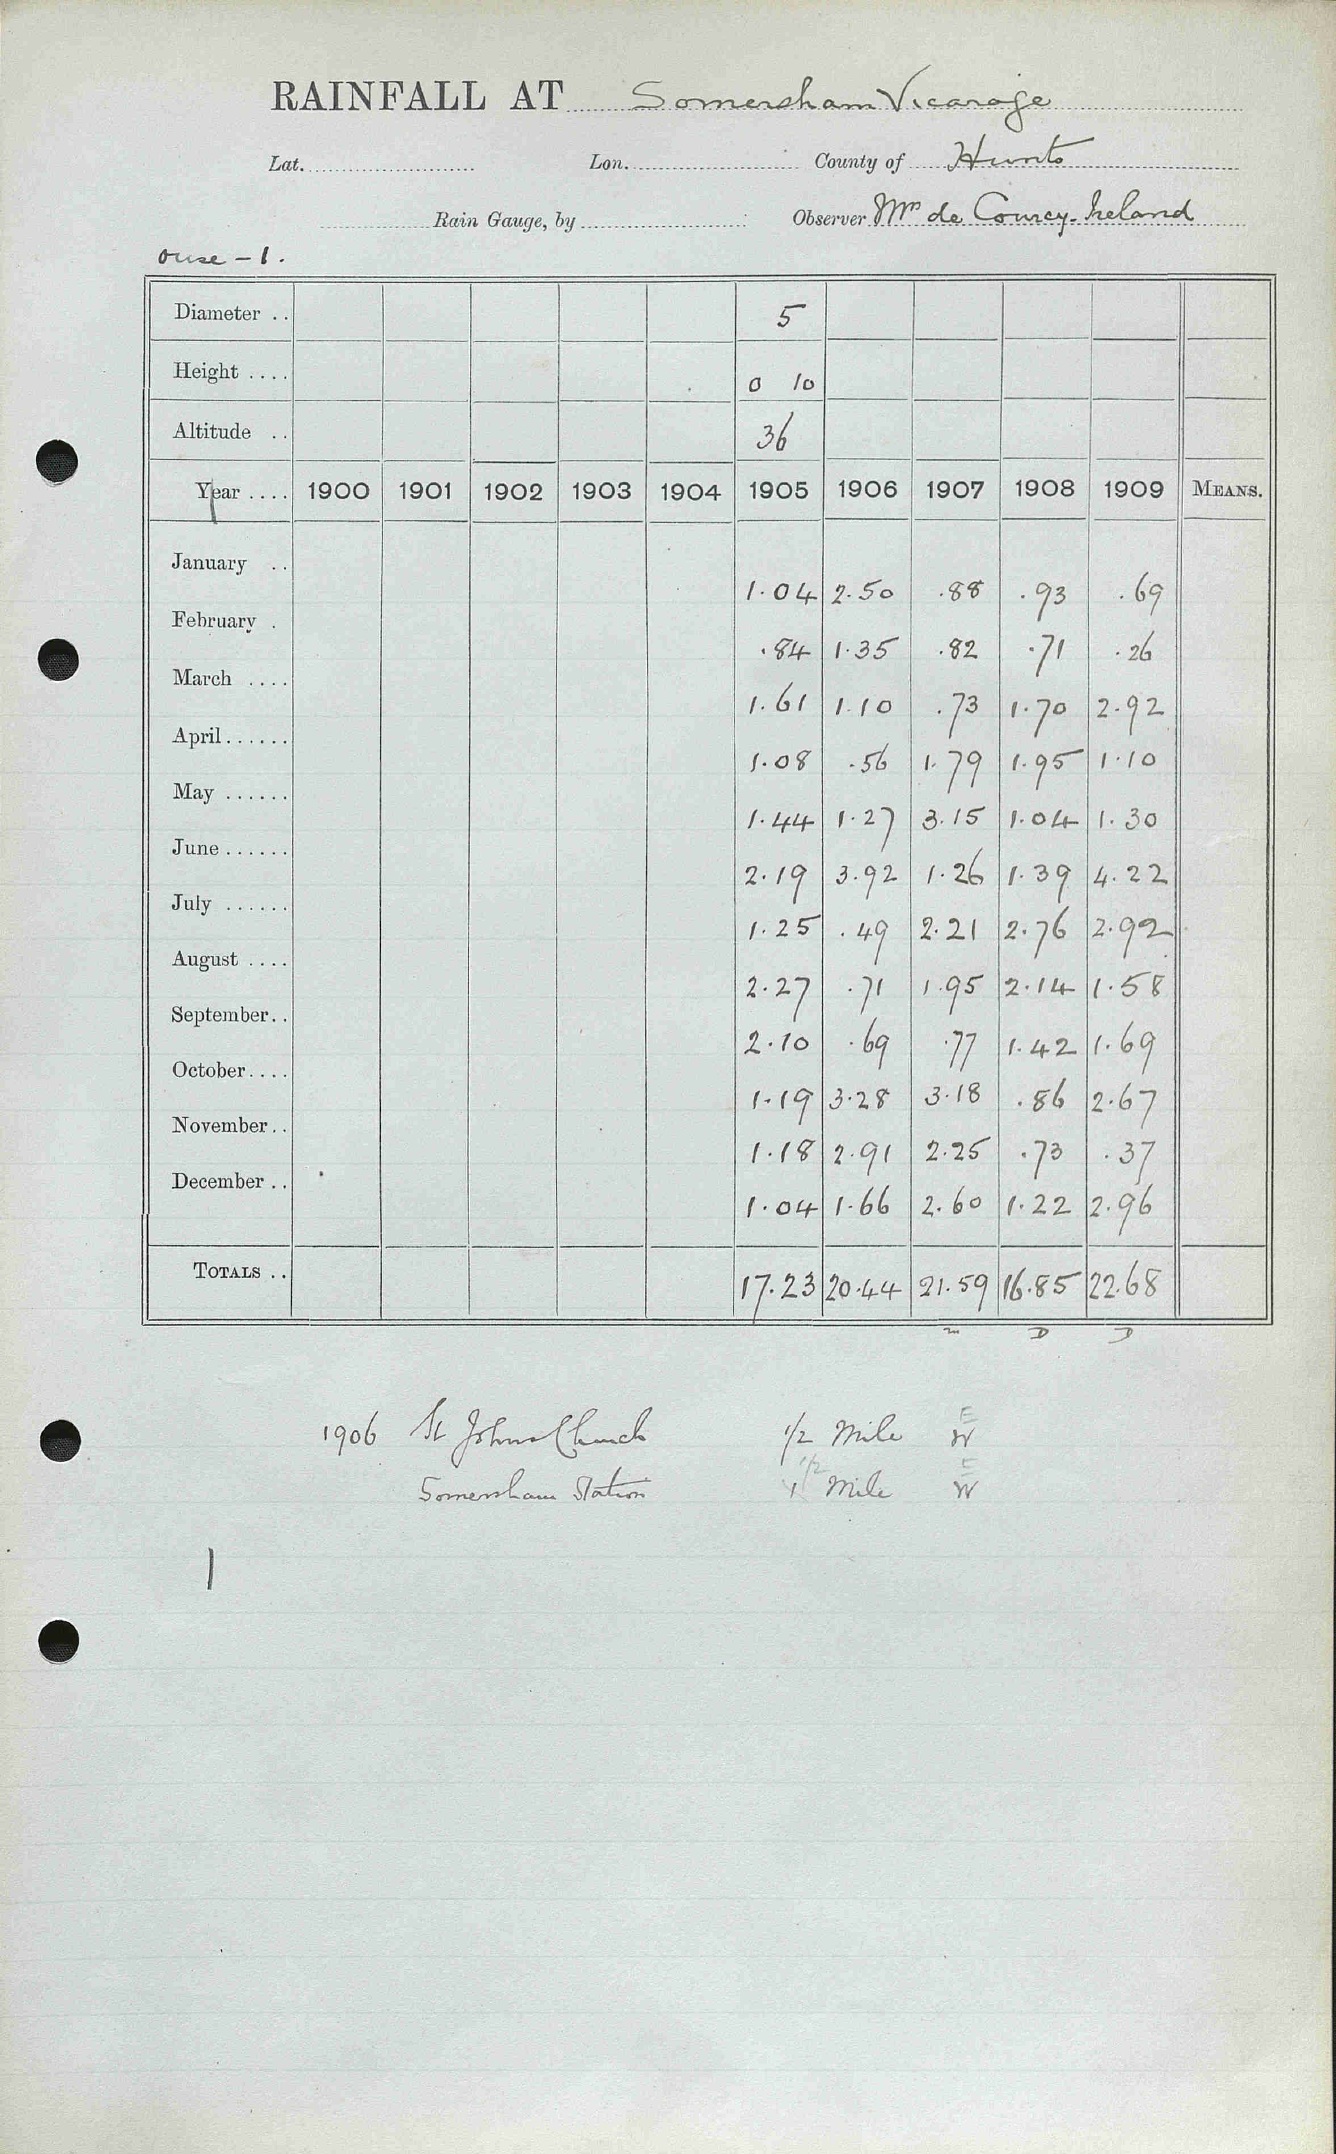 RAINFALL AT Somersham Vicarage
Lat. Lon. County of Hunts
Rain Gauge, by Observer Mrs de Courcy-Ireland
Ouse - 1.
Diameter .. 5
Height .... 0 10
Altitude .. 36
Year .... 1900 1901 1902 1903 1904 1905 1906 1907 1908 1909 MEANS.
January .. 1.04 2.50 .88 .93 .69
February . .84 1.35 .82 .71 .26
March .... 1.61 1.10 .73 1.70 2.92
April...... 1.08 .56 1.79 1.95 1.10
May ...... 1.44 1.27 3.15 1.04 1.30
June...... 2.19 3.92 1.26 1.39 4.22
July ...... 1.25 .49 2.21 2.76 2.92
August .... 2.27 .71 1.95 2.14 1.58
September.. 2.10 .69 .77 1.42 1.69
October.... 1.19 3.28 3.18 .86 2.67
November.. 1.18 2.91 2.25 .73 .37
December .. 1.04 1.66 2.60 1.22 2.96
TOTALS .. 17.23 20.44 21.59 16.85 22.68
D D
1906 St Johns Church 1/2 Mile W E
Somersham Station 1 1/2 Mile W E